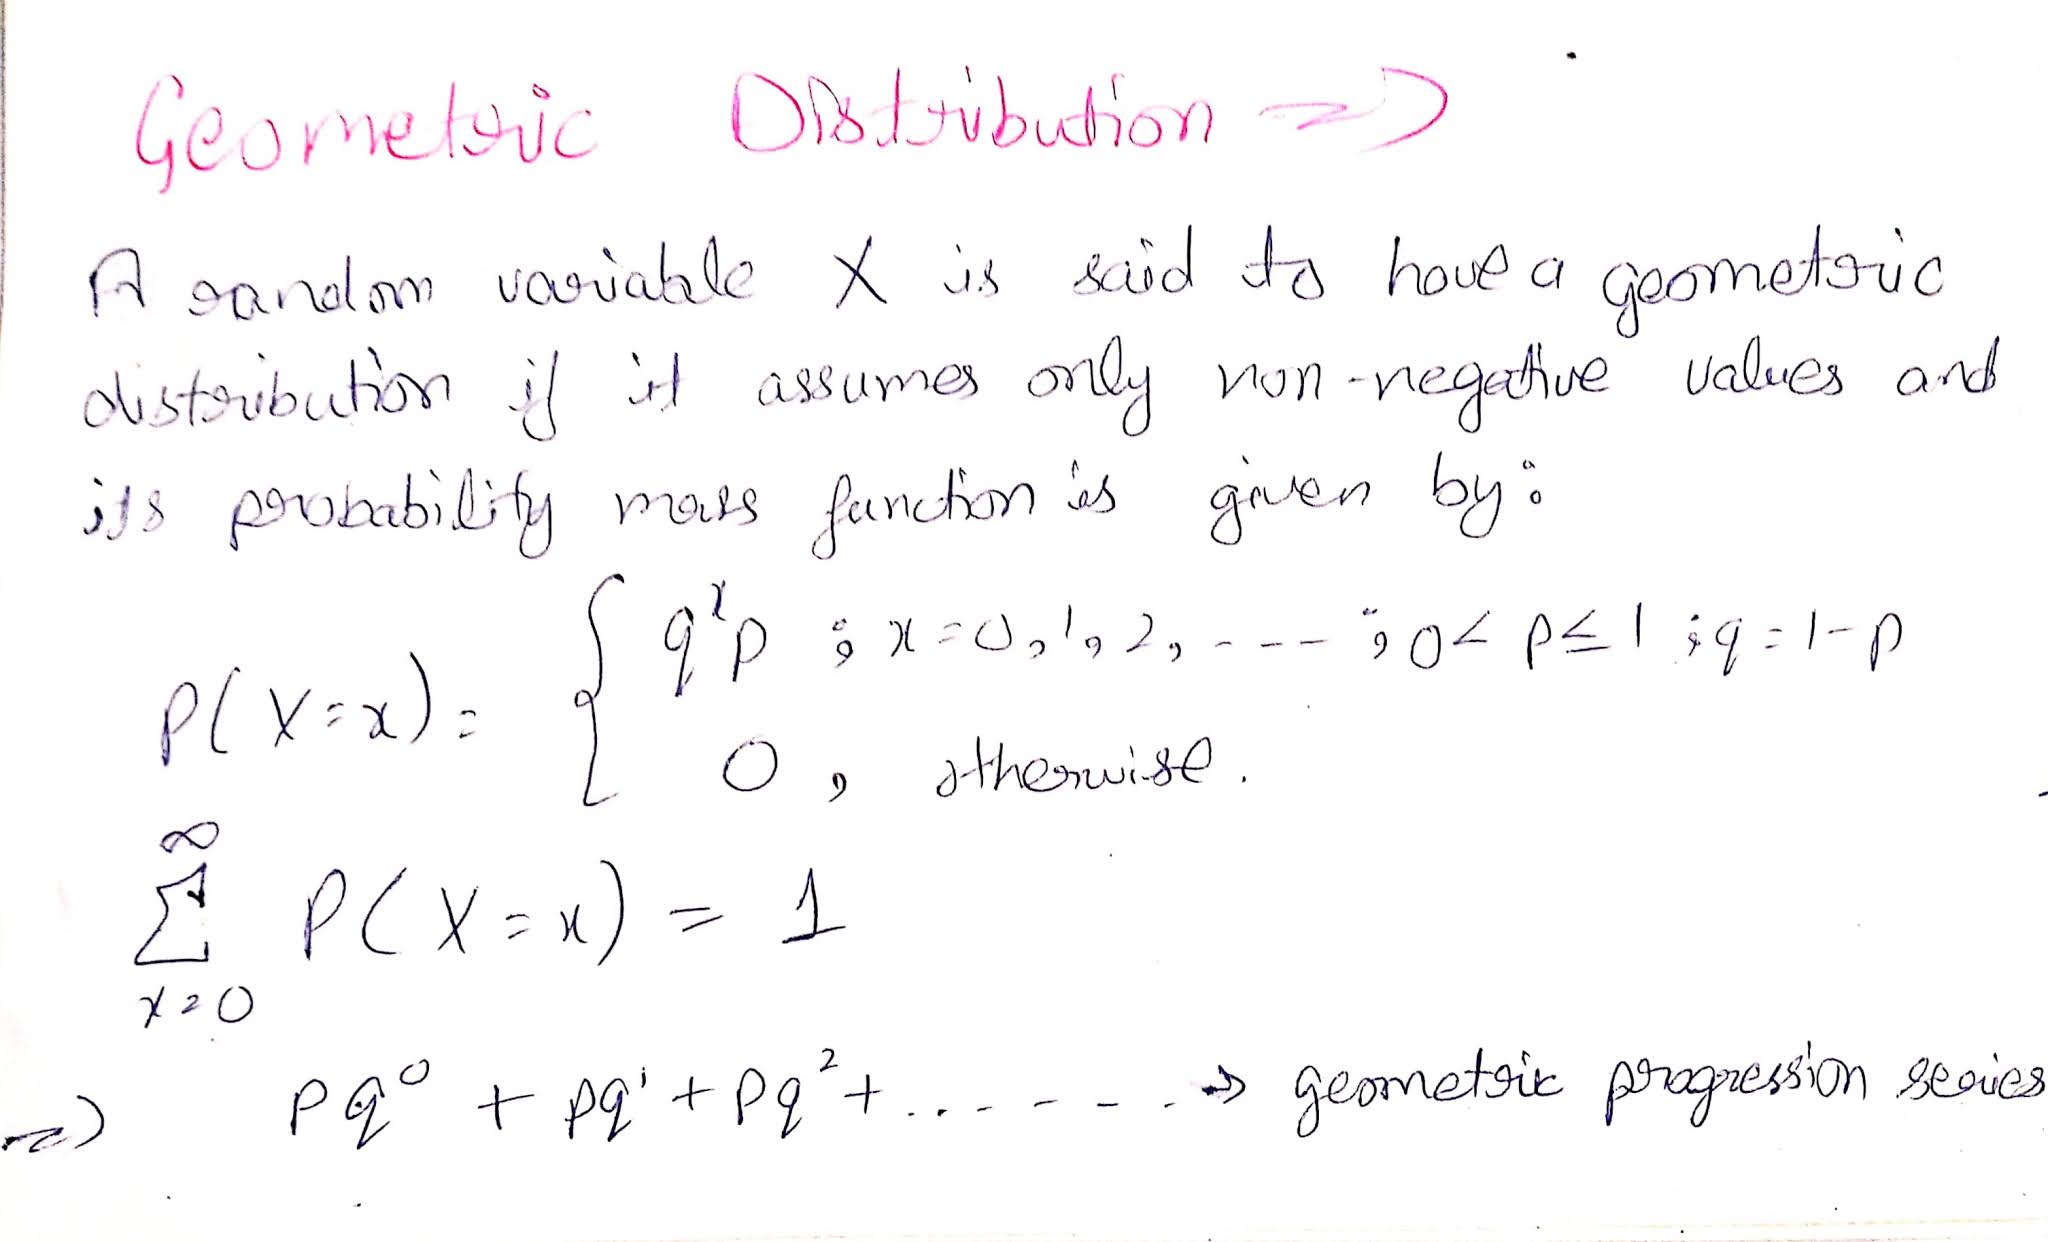 Geometric Distribution =>
A random variable X is said to have a geometric
distribution if it assumes only non-negative values and
its probability mass function is given by:
P(X=x) = { q^x p ; x=0,1,2,---- ; 0< p≤1 ; q=1-p
0 , otherwise.
∞
Σ P(X=x) = 1
x=0
=> pq⁰ + pq¹ + pq² + ....---- → geometric progression series